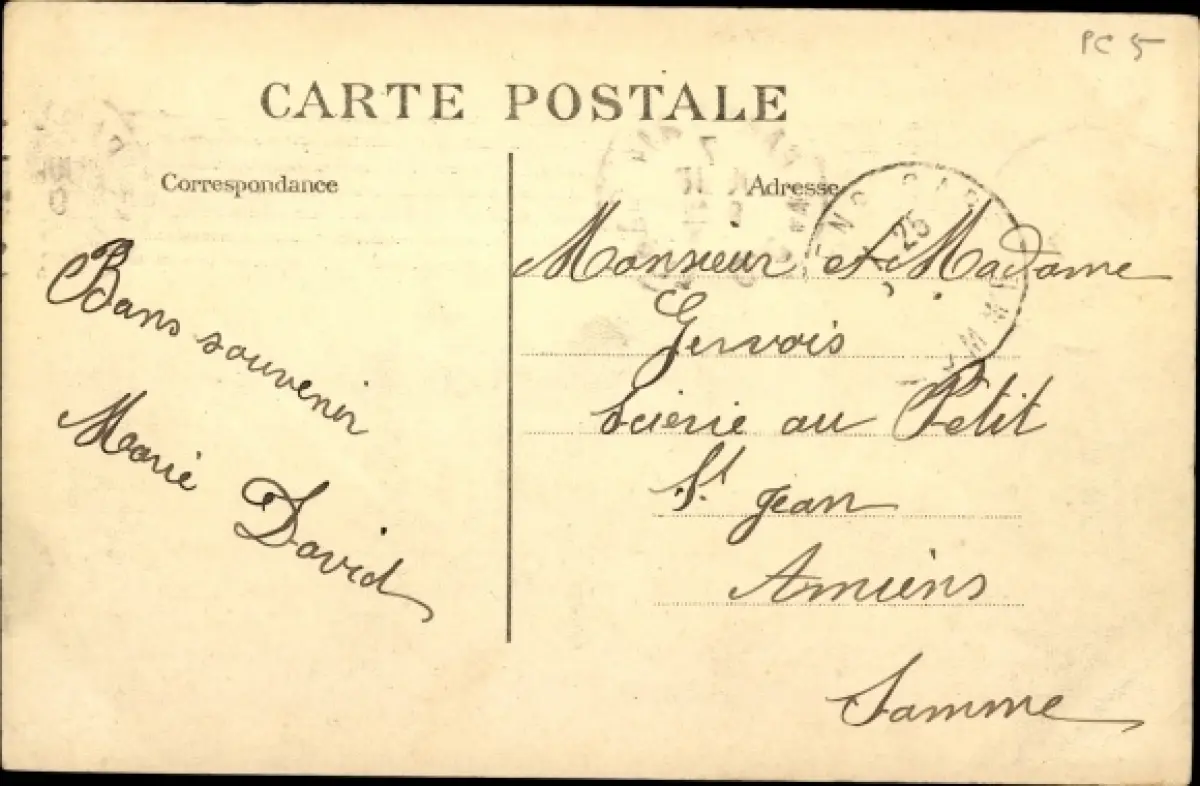 PC 5
CARTE POSTALE
Correspondance
Bons souvenir
Marie David
Adresse
25
Monsieur et Madame
Gervois
Scierie au Petit
St Jean
Amiens
Somme